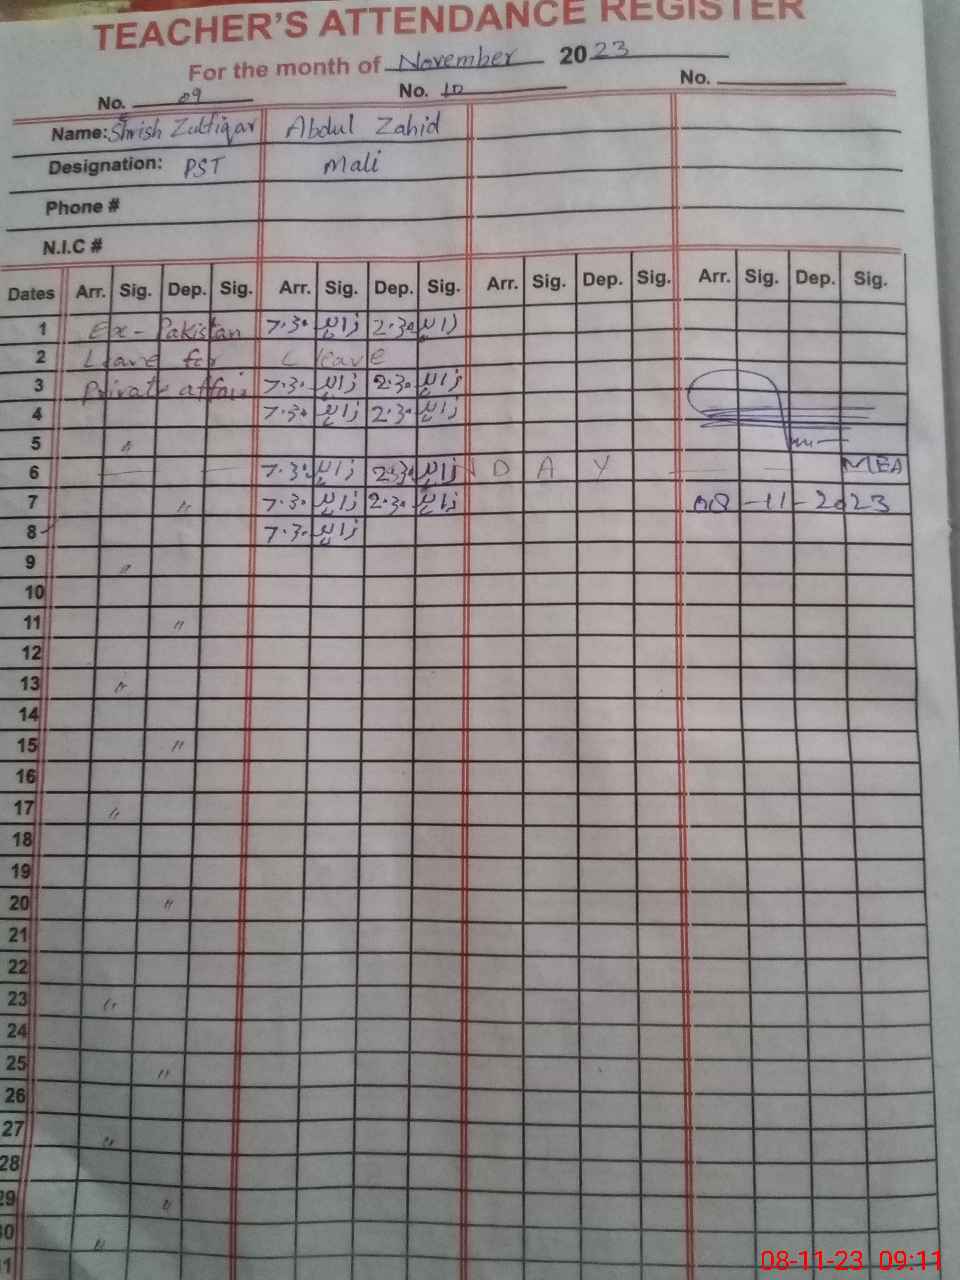 TEACHER'S ATTENDANCE REGISTER
For the month of November 2023
No. 09 No. 10 No.
Name: Shrish Zulfiqar Abdul Zahid
Designation: PST Mali
Phone #
N.I.C #
Dates Arr. Sig. Dep. Sig. Arr. Sig. Dep. Sig. Arr. Sig. Dep. Sig. Arr. Sig. Dep. Sig.
1 Ex-Pakistan 7.30 زاہد 2.30 زاہد
2 Leave for C leave
3 Private affair 7.30 زاہد 2.30 زاہد
4 7.30 زاہد 2.30 زاہد
5 "
6 7.30 زاہد 2.30 زاہد D A Y MEA
7 " 7.30 زاہد 2.30 زاہد 08-11-2023
8 7.30 زاہد
9 "
10
11 "
12
13 "
14
15 "
16
17 "
18
19
20 "
21
22
23 "
24
25 "
26
27 "
28
29 "
30 "
31
08-11-23 09:11